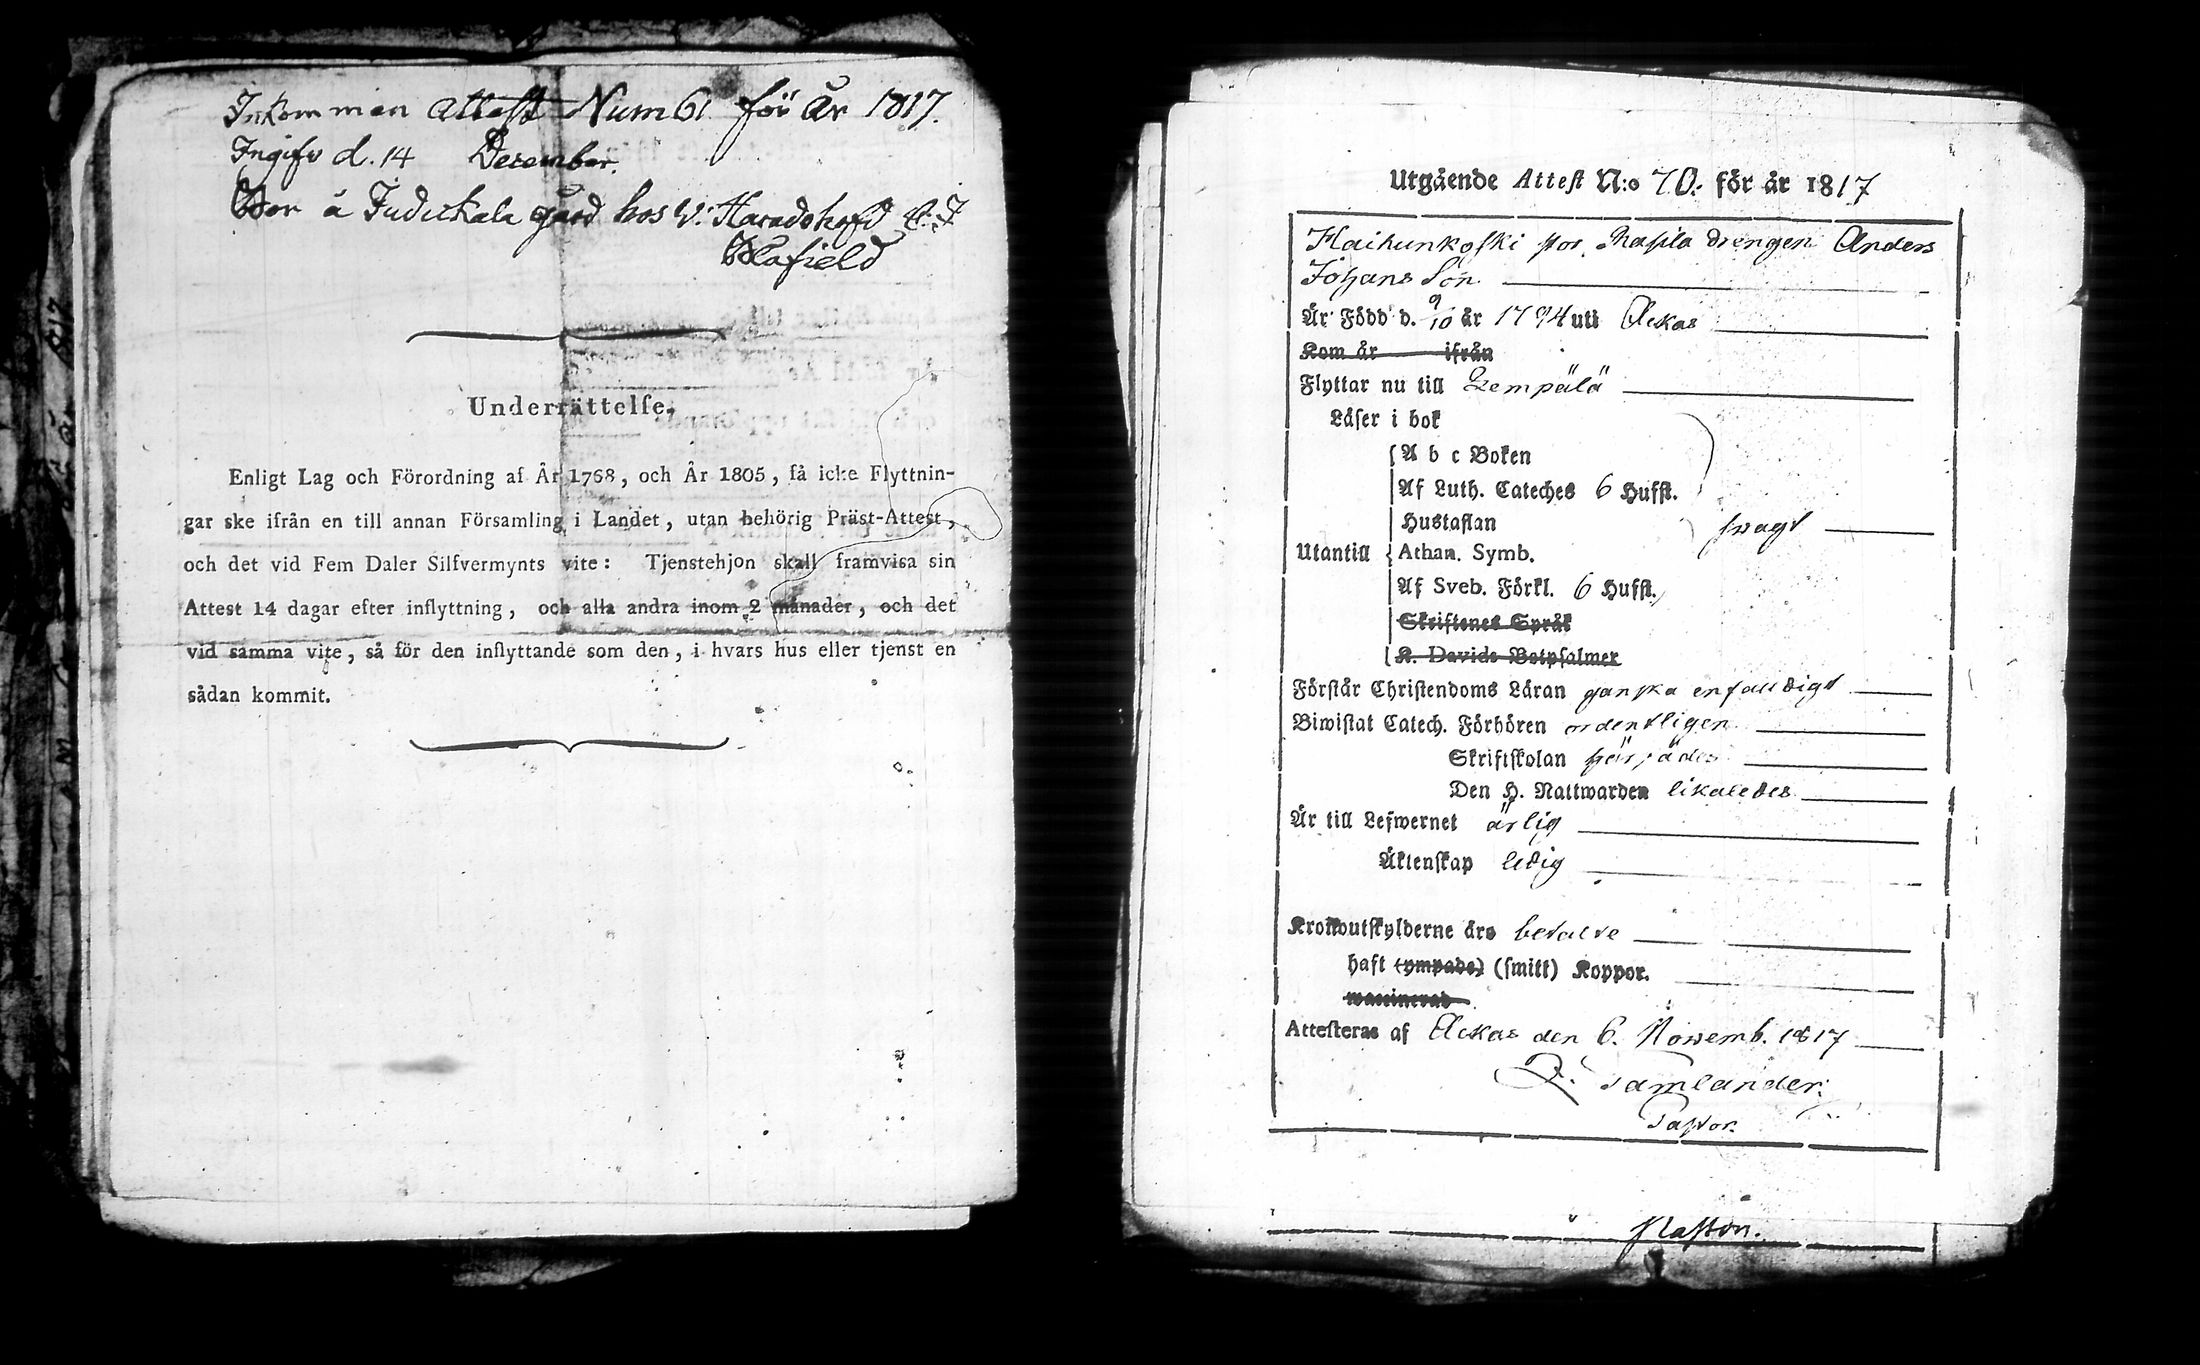 Inkommen Attest Num 61 för År 1817.
Ingifv d. 14 Desember.
Bor å Judickala gård hos V: Haradshöfd
Blafield
Underrättelse.
Enligt Lag och Förordning af År 1768, och År 1805, få icke Flyttnin-
gar ske ifrån en till annan Församling i Landet, utan behörig Präst-Attest,
och det vid Fem Daler Silfvermynts vite: Tjenstehjon skall framvisa sin
Attest 14 dagar efter inflyttning, och alla andra inom 2 månader, och det
vid samma vite, så för den inflyttande som den, i hvars hus eller tjenst en
sådan kommit.
Utgående Attest N:o 70. för år 1817
Haihunkoski Drengen Anders
Johans Son
Är Född d. 9/10 år 1794 uti Ackas
Kom år ifrån
Flyttar nu till Lempälä
Läser i bok
A b c Boken
Af Luth. Cateches 6 Hufst.
Hustaflan swagt
Utantill Athan. Symb.
Af Sveb. Förkl. 6 Hufst.
Skriftenes Språk
K. Davids Botpsalmer
Förstår Christendoms Läran ganska enfaldigt
Biwistat Catech. Förhören ordentligen
Skriftskolan
Den H. Nattwarden likaledes
Är till Lefwernet ärlig
Äktenskap ledig
Kronoutskylderne äro betalte
haft (ympade) (smitt) Koppor.
waccinerad
Attesteras af Ackas den 6. Novemb. 1817
Tamlander.
Pastor.